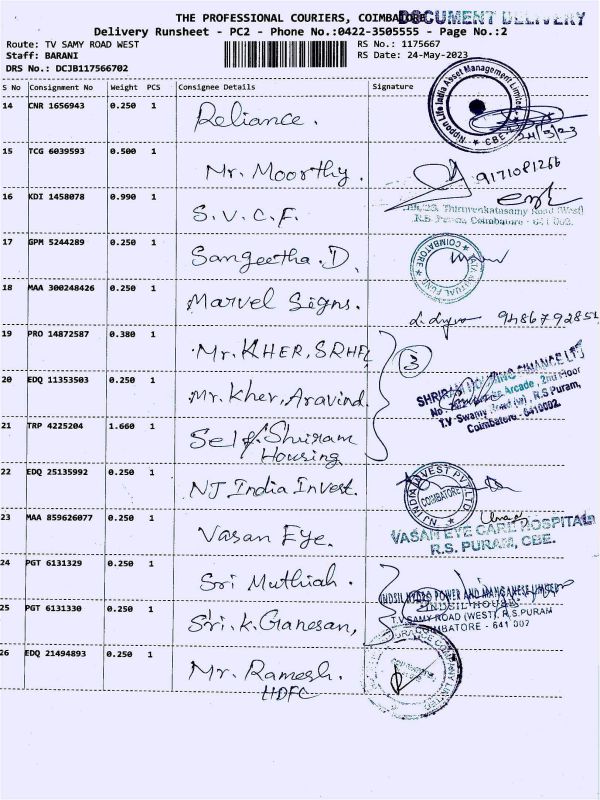 THE PROFESSIONAL COURIERS, COIMBATORE
DOCUMENT DELIVERY
Delivery Runsheet - PC2 - Phone No.:0422-3505555 - Page No.:2
Route: TV SAMY ROAD WEST
RS No.: 1175667
Staff: BARANI
RS Date: 24-May-2023
DRS No.: DCJB117566702
S No Consignment No Weight PCS Consignee Details Signature
14 CNR 1656943 0.250 1 Reliance.
Nippon Life India Asset Management Limited
CBE
15 TCG 6039593 0.500 1 Mr. Moorthy.
9171081266
16 KDI 1458078 0.990 1 S.V.C.F.
Thiruvenkatasamy Road (West)
R.S. Puram, Coimbatore - 641 002.
17 GPM 5244289 0.250 1 Sangeetha.D.
COIMBATORE
MUTUAL FUND
18 MAA 300248426 0.250 1 Marvel Signs.
9486792851
19 PRO 14872587 0.380 1 Mr. KHER, SRHFL
3
20 EDQ 11353503 0.250 1 Mr. Kher, Aravind.
SHRIRAM HOUSING FINANCE LTD
Arcade, 2nd Floor
T.V. Swamy Road (W), R.S Puram,
Coimbatore - 641002.
21 TRP 4225204 1.660 1 Self. Shriram
Housing
22 EDQ 25135992 0.250 1 NJ India Invest.
NJ INDIA INVEST PVT LTD
COIMBATORE
23 MAA 859626077 0.250 1 Vasan Eye.
VASAN EYE CARE HOSPITAL
R.S. PURAM, CBE.
24 PGT 6131329 0.250 1 Sri Muthiah.
INDSIL HYDRO POWER AND MANGANESE LIMITED
INDSIL HOUSE
T.V SAMY ROAD (WEST), R.S.PURAM
COIMBATORE - 641 002
25 PGT 6131330 0.250 1 Sri. K. Ganesan,
26 EDQ 21494893 0.250 1 Mr. Ramesh.
HDFC